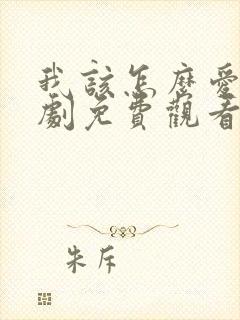 我該怎麼愛
劇免費觀看
朱斥